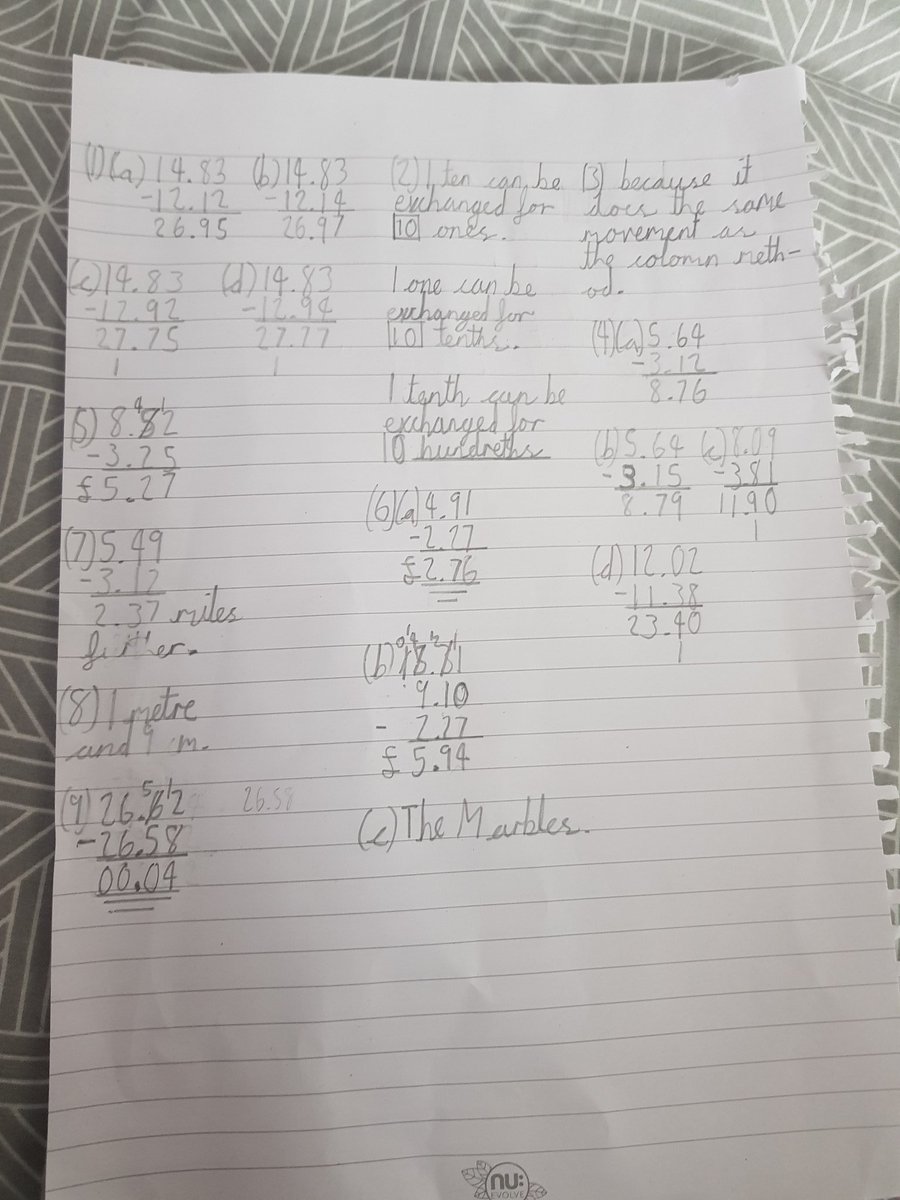 (1)(a) 14.83
-12.12
26.95
(b) 14.83
-12.14
26.97
(c) 14.83
-12.92
27.75
1
(d) 14.83
-12.94
27.77
1
(2) 1 ten can be
exchanged for
10 ones.
1 one can be
exchanged for
10 tenths.
1 tenth can be
exchanged for
10 hundreths
(3) because it
does the same
movement as
the colomn meth-
od.
(4)(a) 5.64
-3.12
8.76
(b) 5.64
-3.15
8.79
(c) 8.09
-3.81
11.90
1
(d) 12.02
-11.38
23.40
1
(5) 8.82
-3.25
£5.27
(6)(a) 4.91
-2.27
£2.76
(b) 18.81
9.10
- 2.27
£ 5.94
(c) The Marbles.
(7) 5.49
-3.12
2.37 miles
further.
(8) 1 metre
and 9 m.
(9) 26.62
-26.58
00.04
26.58
nu:
EVOLVE